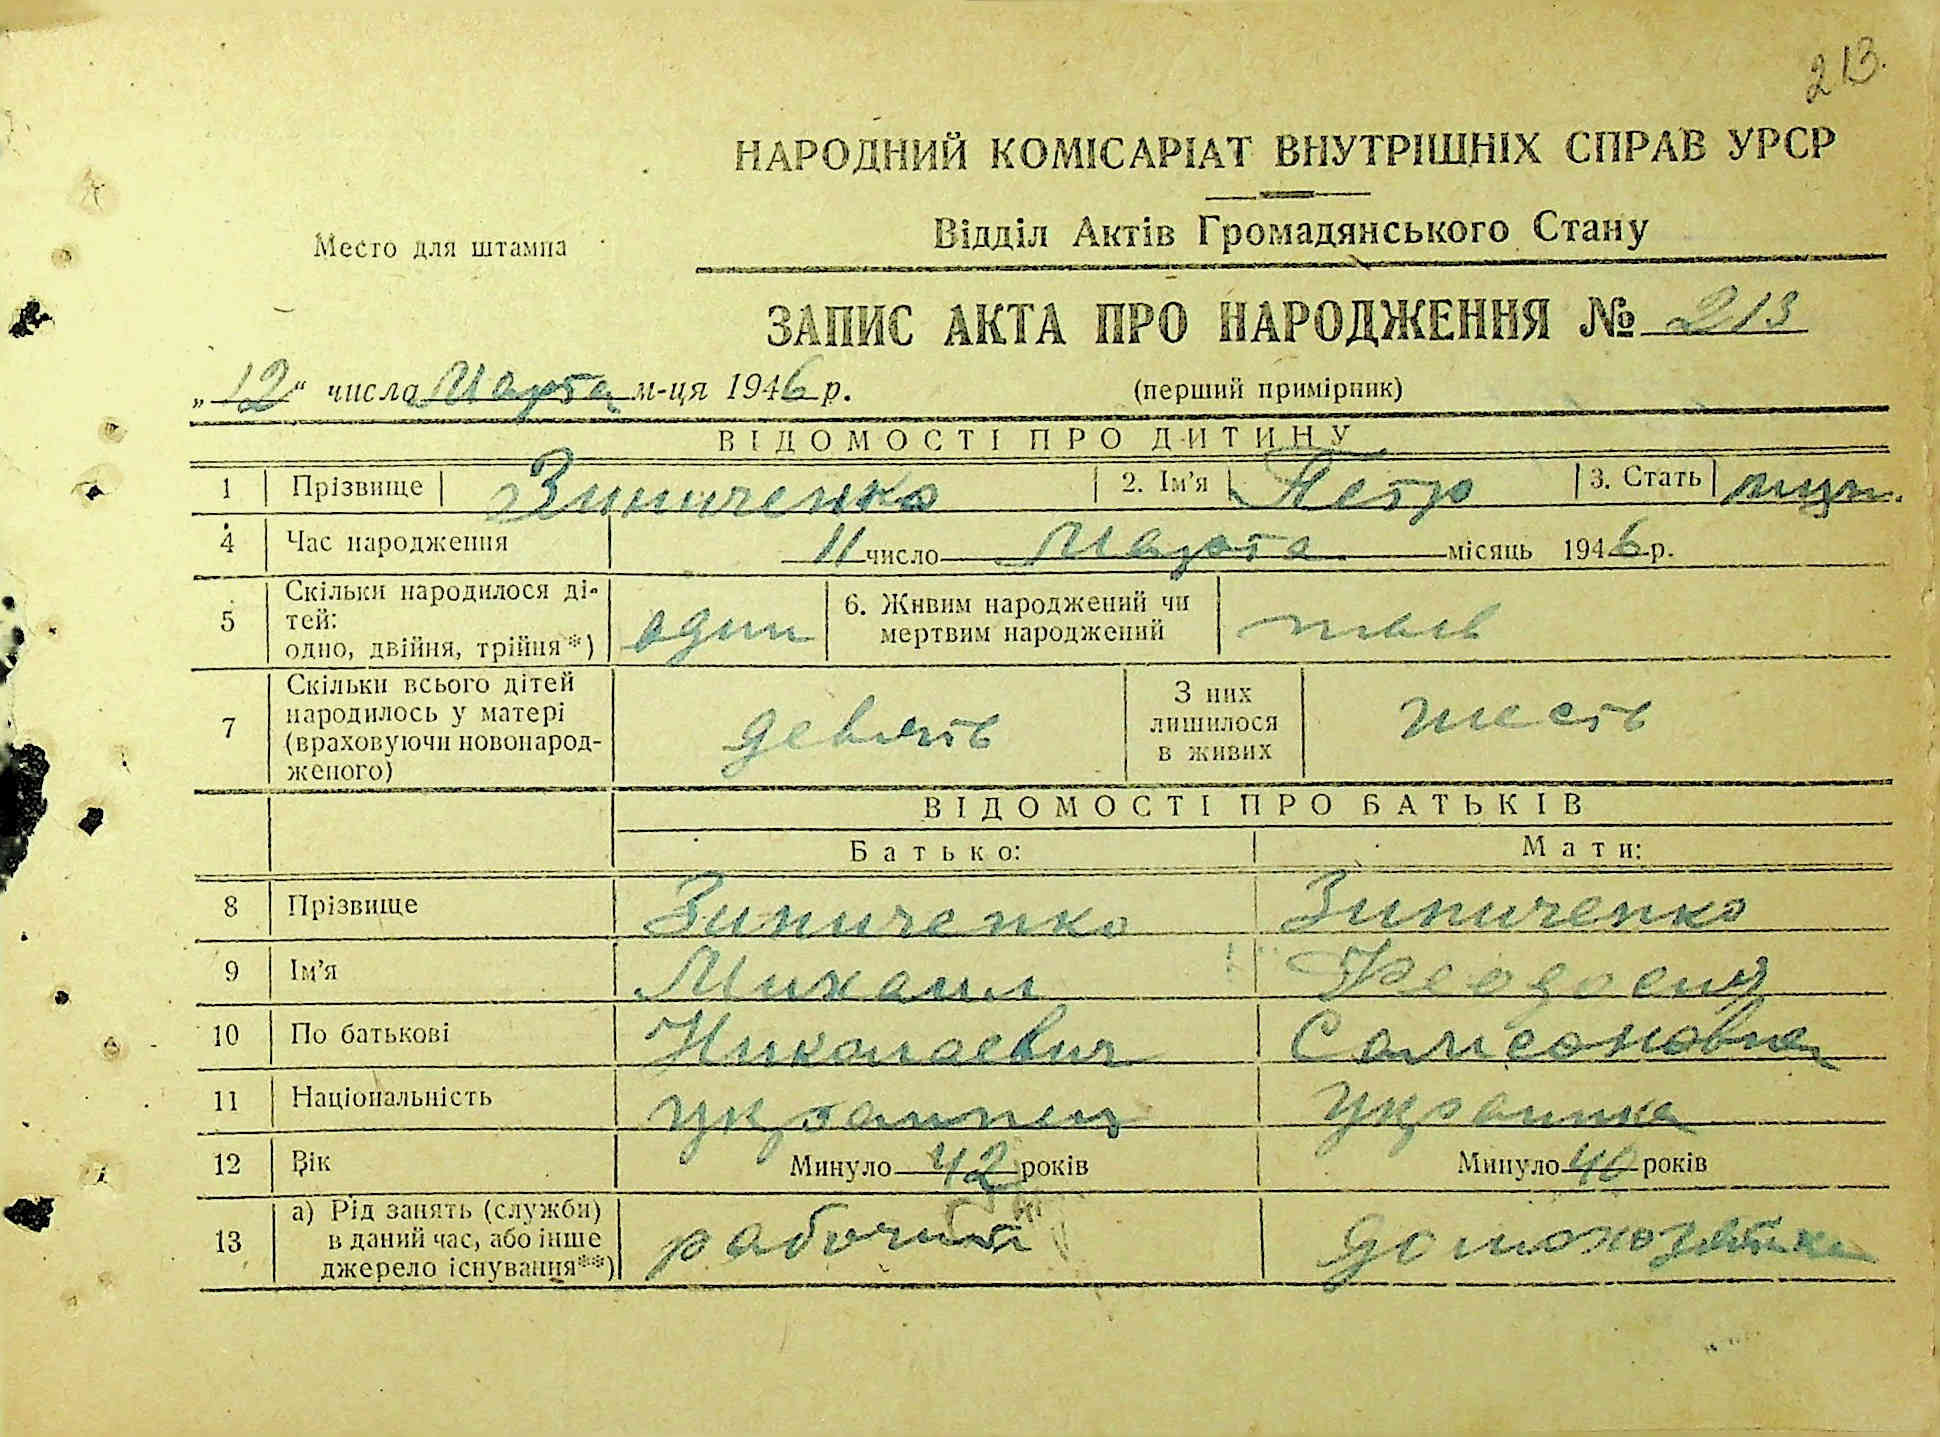 213.
НАРОДНИЙ КОМІСАРІАТ ВНУТРІШНІХ СПРАВ УРСР
Відділ Актів Громадянського Стану
Место для штампа
ЗАПИС АКТА ПРО НАРОДЖЕННЯ № 213
„12“ числа Марта м-ця 1946 р.
(перший примірник)
ВІДОМОСТІ ПРО ДИТИНУ
1 Прізвище Зиниченко 2. Ім'я Петр 3. Стать муж.
4 Час народження 11 число Марта місяць 1946 р.
5 Скільки народилося ді-
тей:
одно, двійня, трійня*) один
6. Живим народжений чи
мертвим народжений
7 Скільки всього дітей
народилось у матері
(враховуючи новонарод-
женого) девять
З них
лишилося
в живих шесть
ВІДОМОСТІ ПРО БАТЬКІВ
Батько: Мати:
8 Прізвище Зиниченко Зиниченко
9 Ім'я Михаил Феодосия
10 По батькові Николаевич Самсоновна
11 Національність украинец украинка
12 Вік Минуло 42 років Минуло 40 років
13 а) Рід занять (служби)
в даний час, або інше
джерело існування**) рабочий домохозяйка